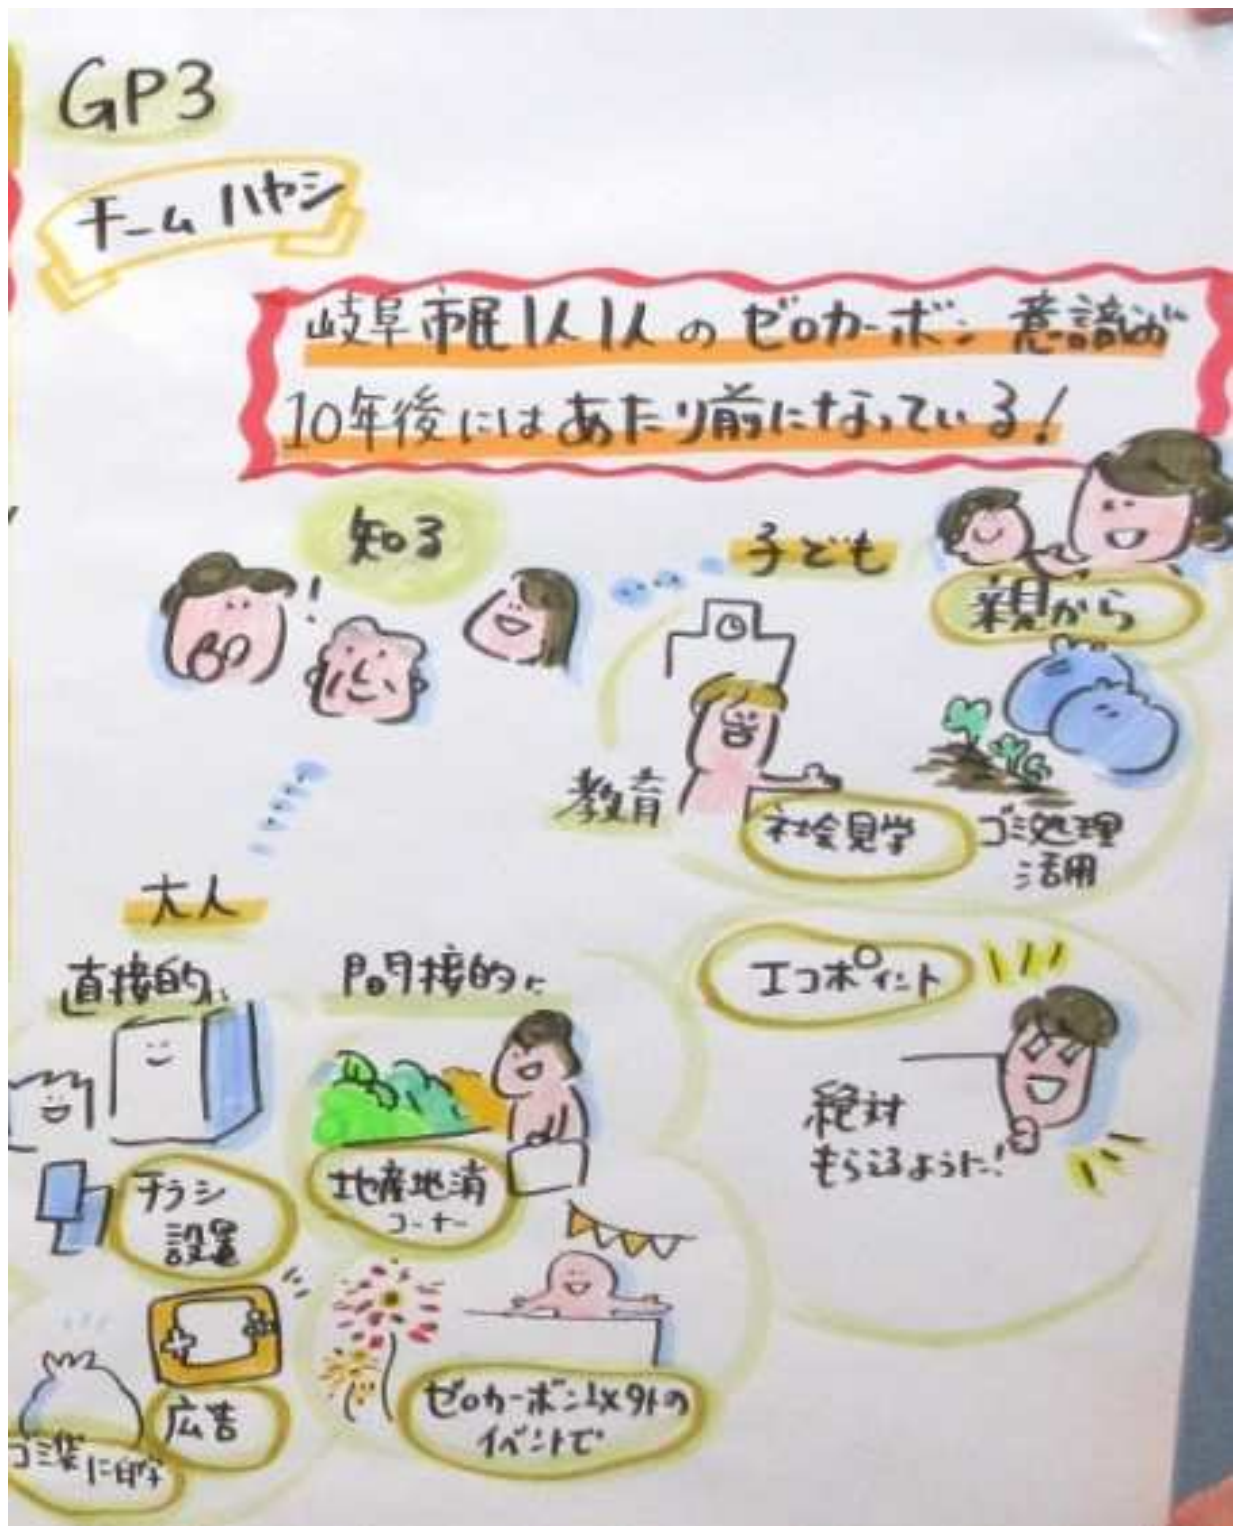 GP3
チームハヤシ
岐阜市民1人1人のゼロカーボン意識が
10年後にはあたり前になっている!
知る
子ども
親から
教育
社会見学
ゴミ処理
活用
大人
直接的に
間接的に
エコポイント
絶対
もらえるように!
チラシ
設置
地産地消
コーナー
広告
ゼロカーボン以外の
イベントで
ゴミ袋に印字